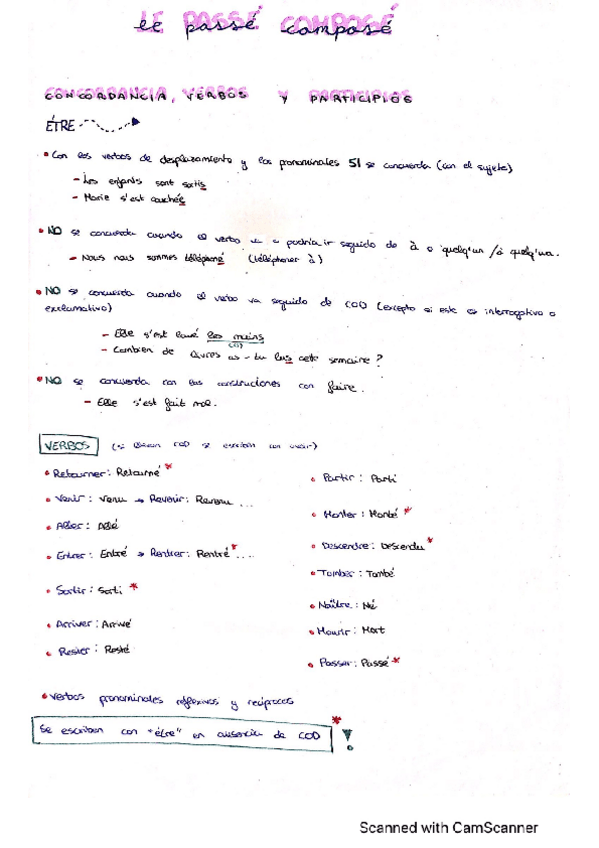 le passé composé
CONCORDANCIA, VERBOS Y PARTICIPIOS
ÊTRE
• Con los verbos de desplazamiento y los pronominales SI se concuerda (con el sujeto)
- Les enfants sont sortis
- Marie s'est couchée
• NO se concuerda cuando el verbo va o podría ir seguido de à o quelqu'un / à quelqu'un.
- Nous nous sommes téléphoné (téléphoner à)
• NO se concuerda cuando el verbo va seguido de COD (excepto si este es interrogativo o
exclamativo)
- Elle s'est lavé les mains
- Combien de livres as-tu lus cette semaine?
• NO se concuerda con las construcciones con faire.
- Elle s'est fait mal.
VERBOS (si llevan COD se escriben con avoir)
• Retourner: Retourné *
• Venir: Venu → Revenir: Revenu ...
• Aller: Allé
• Entrer: Entré → Rentrer: Rentré * ...
• Sortir: Sorti *
• Arriver: Arrivé
• Rester: Resté
• Partir: Parti
• Monter: Monté *
• Descendre: Descendu *
• Tomber: Tombé
• Naître: Né
• Mourir: Mort
• Passer: Passé *
• Verbos pronominales reflexivos y recíprocos
Se escriben con "être" en ausencia de COD * !
Scanned with CamScanner